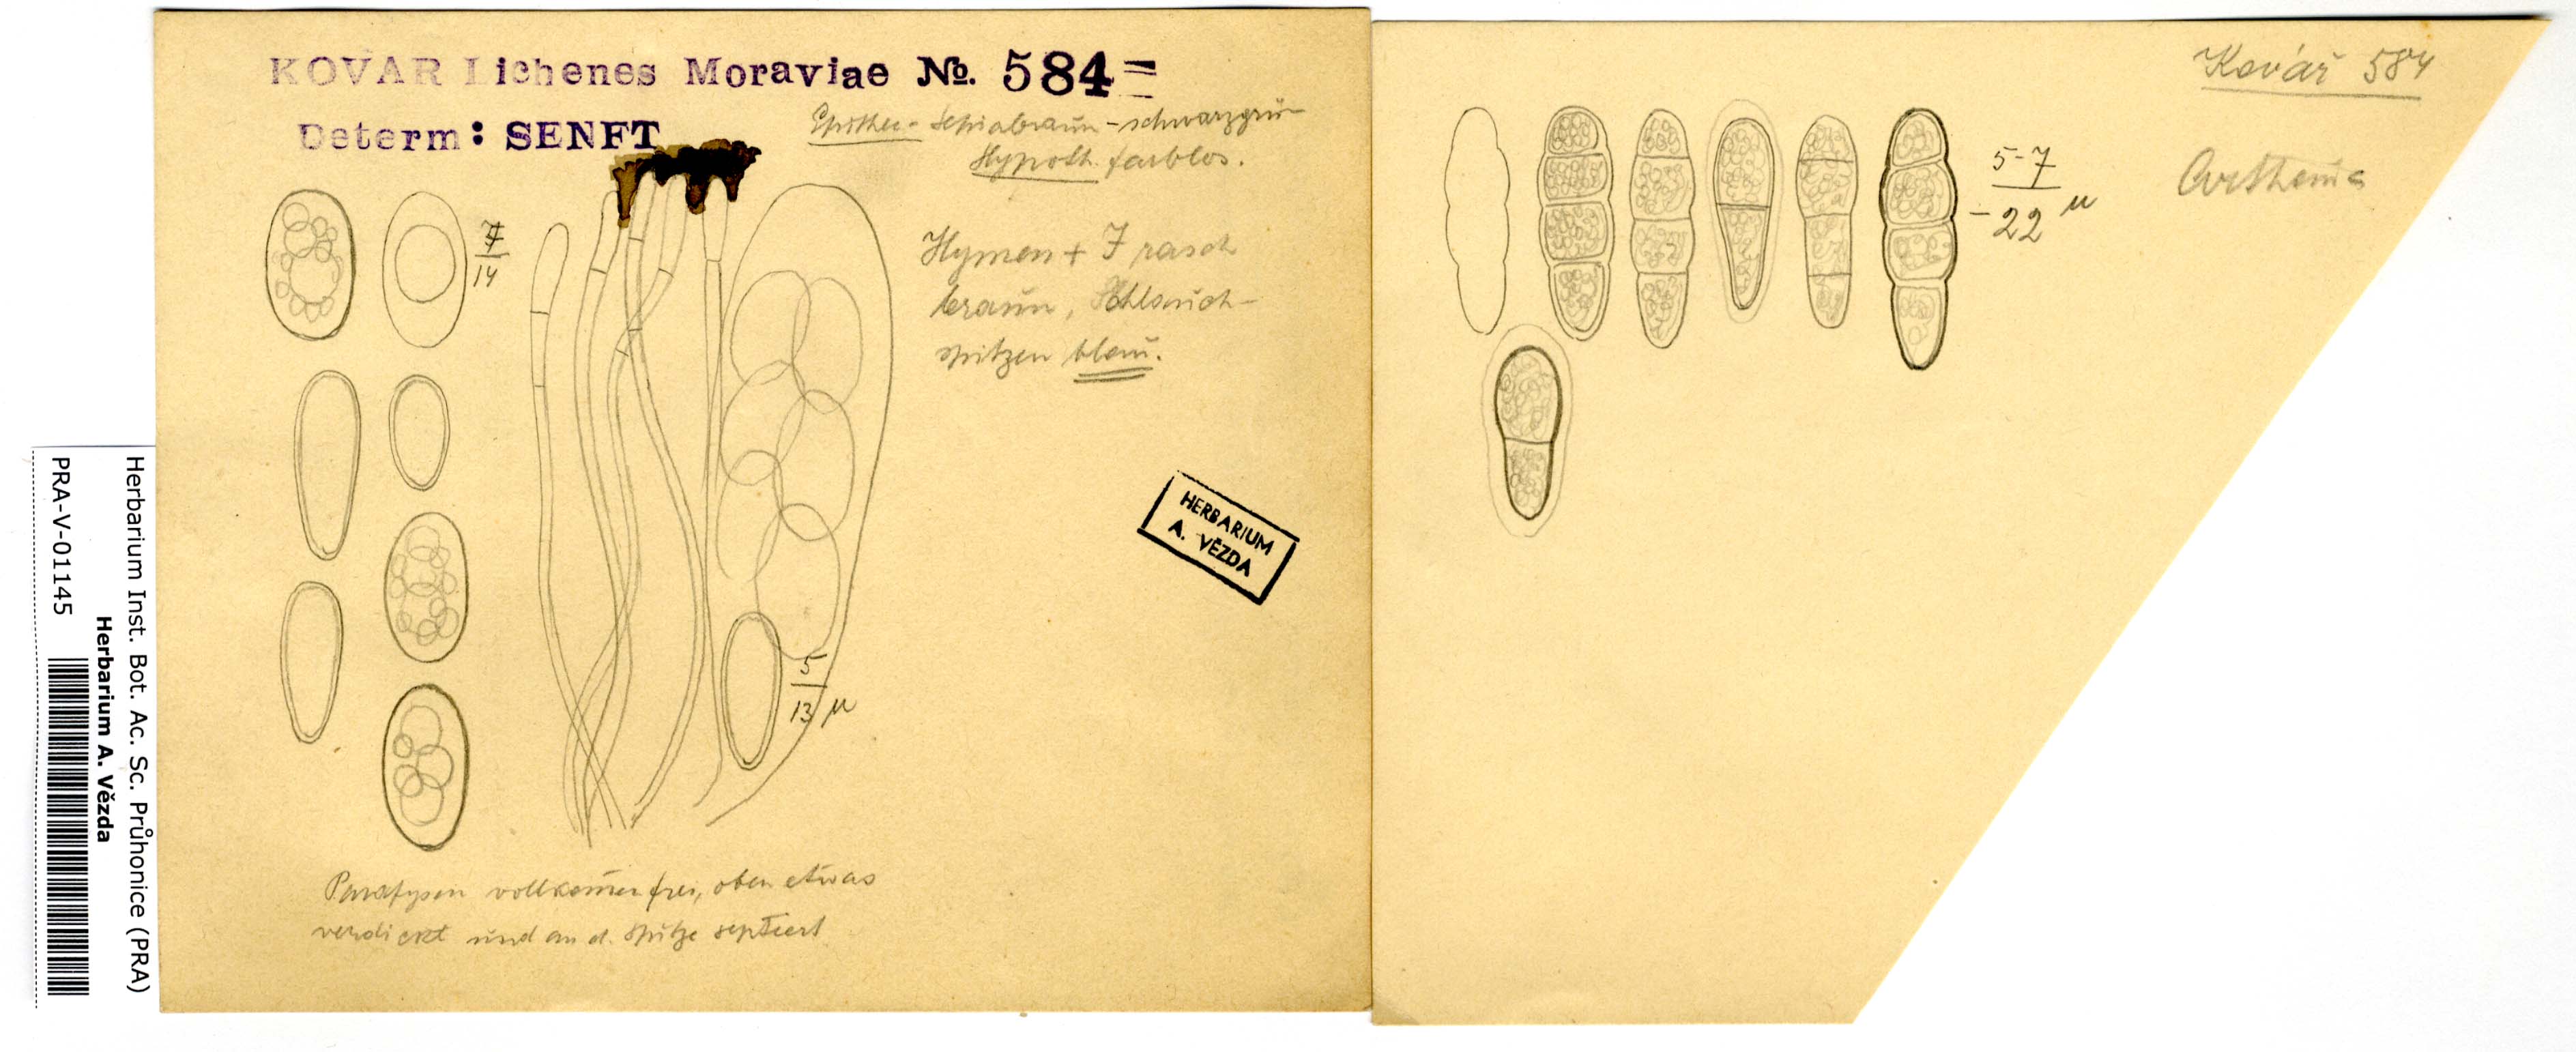 KOVAR Lichenes Moraviae No. 584=
Determ: SENFT
Epithec- sepiabraun-schwarzgrün
Hypoth. farblos.
7
14
Hymen + J rasch
braun, Schlauch-
spitzen blau.
HERBARIUM
A. VĚZDA
5
13 µ
Parafysen vollkom̅en frei, oben etwas
verdickt und an d. Spitze septiert
Kovář 584
5-7
-22 µ
Herbarium Inst. Bot. Ac. Sc. Průhonice (PRA)
Herbarium A. Vězda
PRA-V-01145